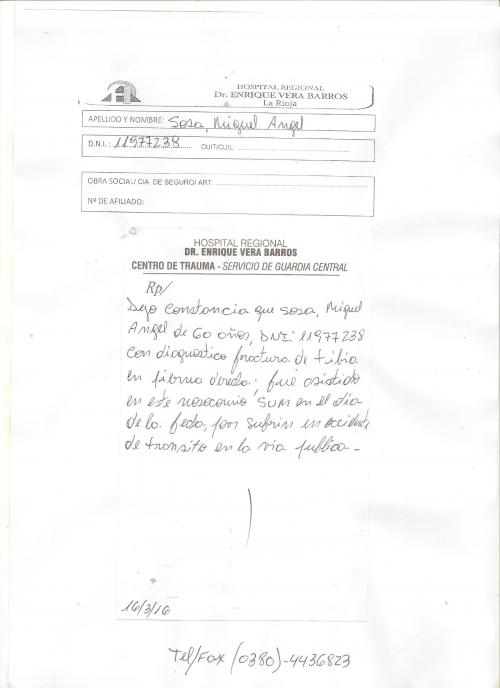 HOSPITAL REGIONAL
Dr. ENRIQUE VERA BARROS
La Rioja
APELLIDO Y NOMBRE: Sosa, Miguel Angel
D.N.I.: 11977238 CUIT/CUIL:
OBRA SOCIAL/ CIA. DE SEGURO/ ART.
Nº DE AFILIADO:
HOSPITAL REGIONAL
DR. ENRIQUE VERA BARROS
CENTRO DE TRAUMA - SERVICIO DE GUARDIA CENTRAL
Rp/
Dejo constancia que Sosa, Miguel
Angel de 60 años, DNI: 11977238
con diagnostico fractura de tibia
en pierna derecha; fue asistido
en este nosocomio en el dia
de la fecha, por sufrir un accidente
de transito en la via publica-
16/3/16
Tel/Fax (0380)-4436823